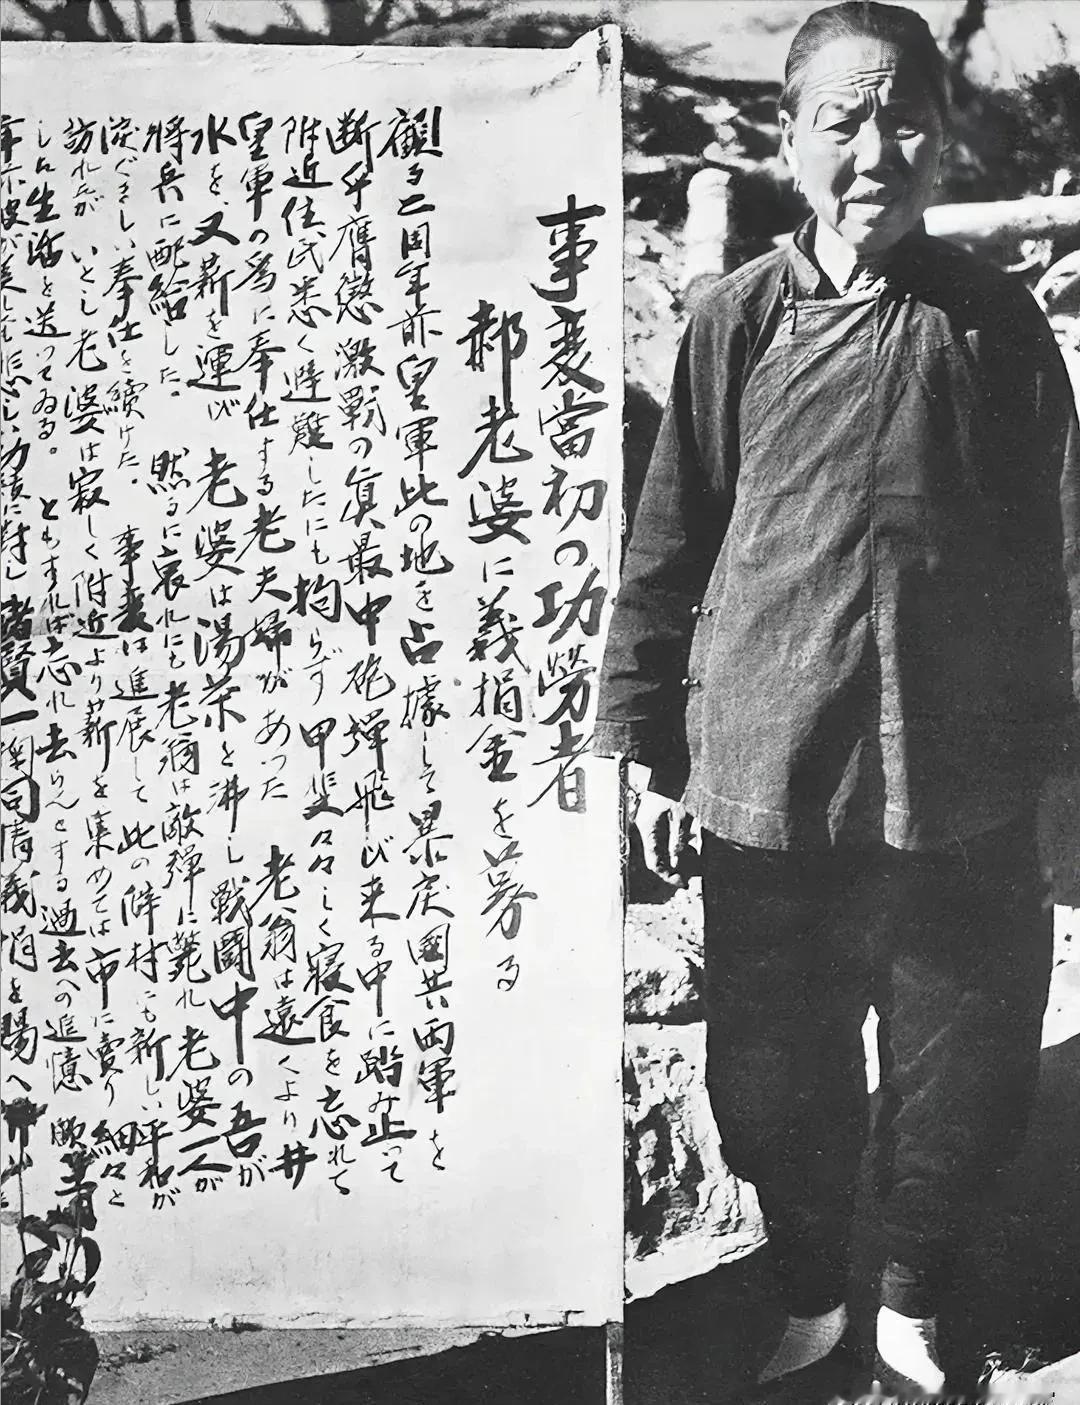 事変當初の功勞者
郝老婆に義捐金を募る
顧る二周年前皇軍此の地を占據して暴戻國共両軍を
断乎膺懲激戰の眞最中砲弾飛び来る中に踏み止って
附近住民悉く避難したにも拘らず甲斐々々しく寝食を忘れて
皇軍の為に奉仕する老夫婦があった 老翁は遠くより井
水を、又薪を運び 老婆は湯茶を沸し戦闘中の吾が
將兵に配給した。 然るに哀れにも老翁は敵弾に斃れ老婆一人が
淀ぐましい奉仕を續けた。 事変は進展して此の僻村にも新しい平和が
訪れたが いとし老婆は寂しく附近より薪を集めては市に賣り細々と
しん生活を送ってゐる。ともすれば忘れ去らんとする過去への追憶 願
対し 諸賢一掬同情義捐を賜へ